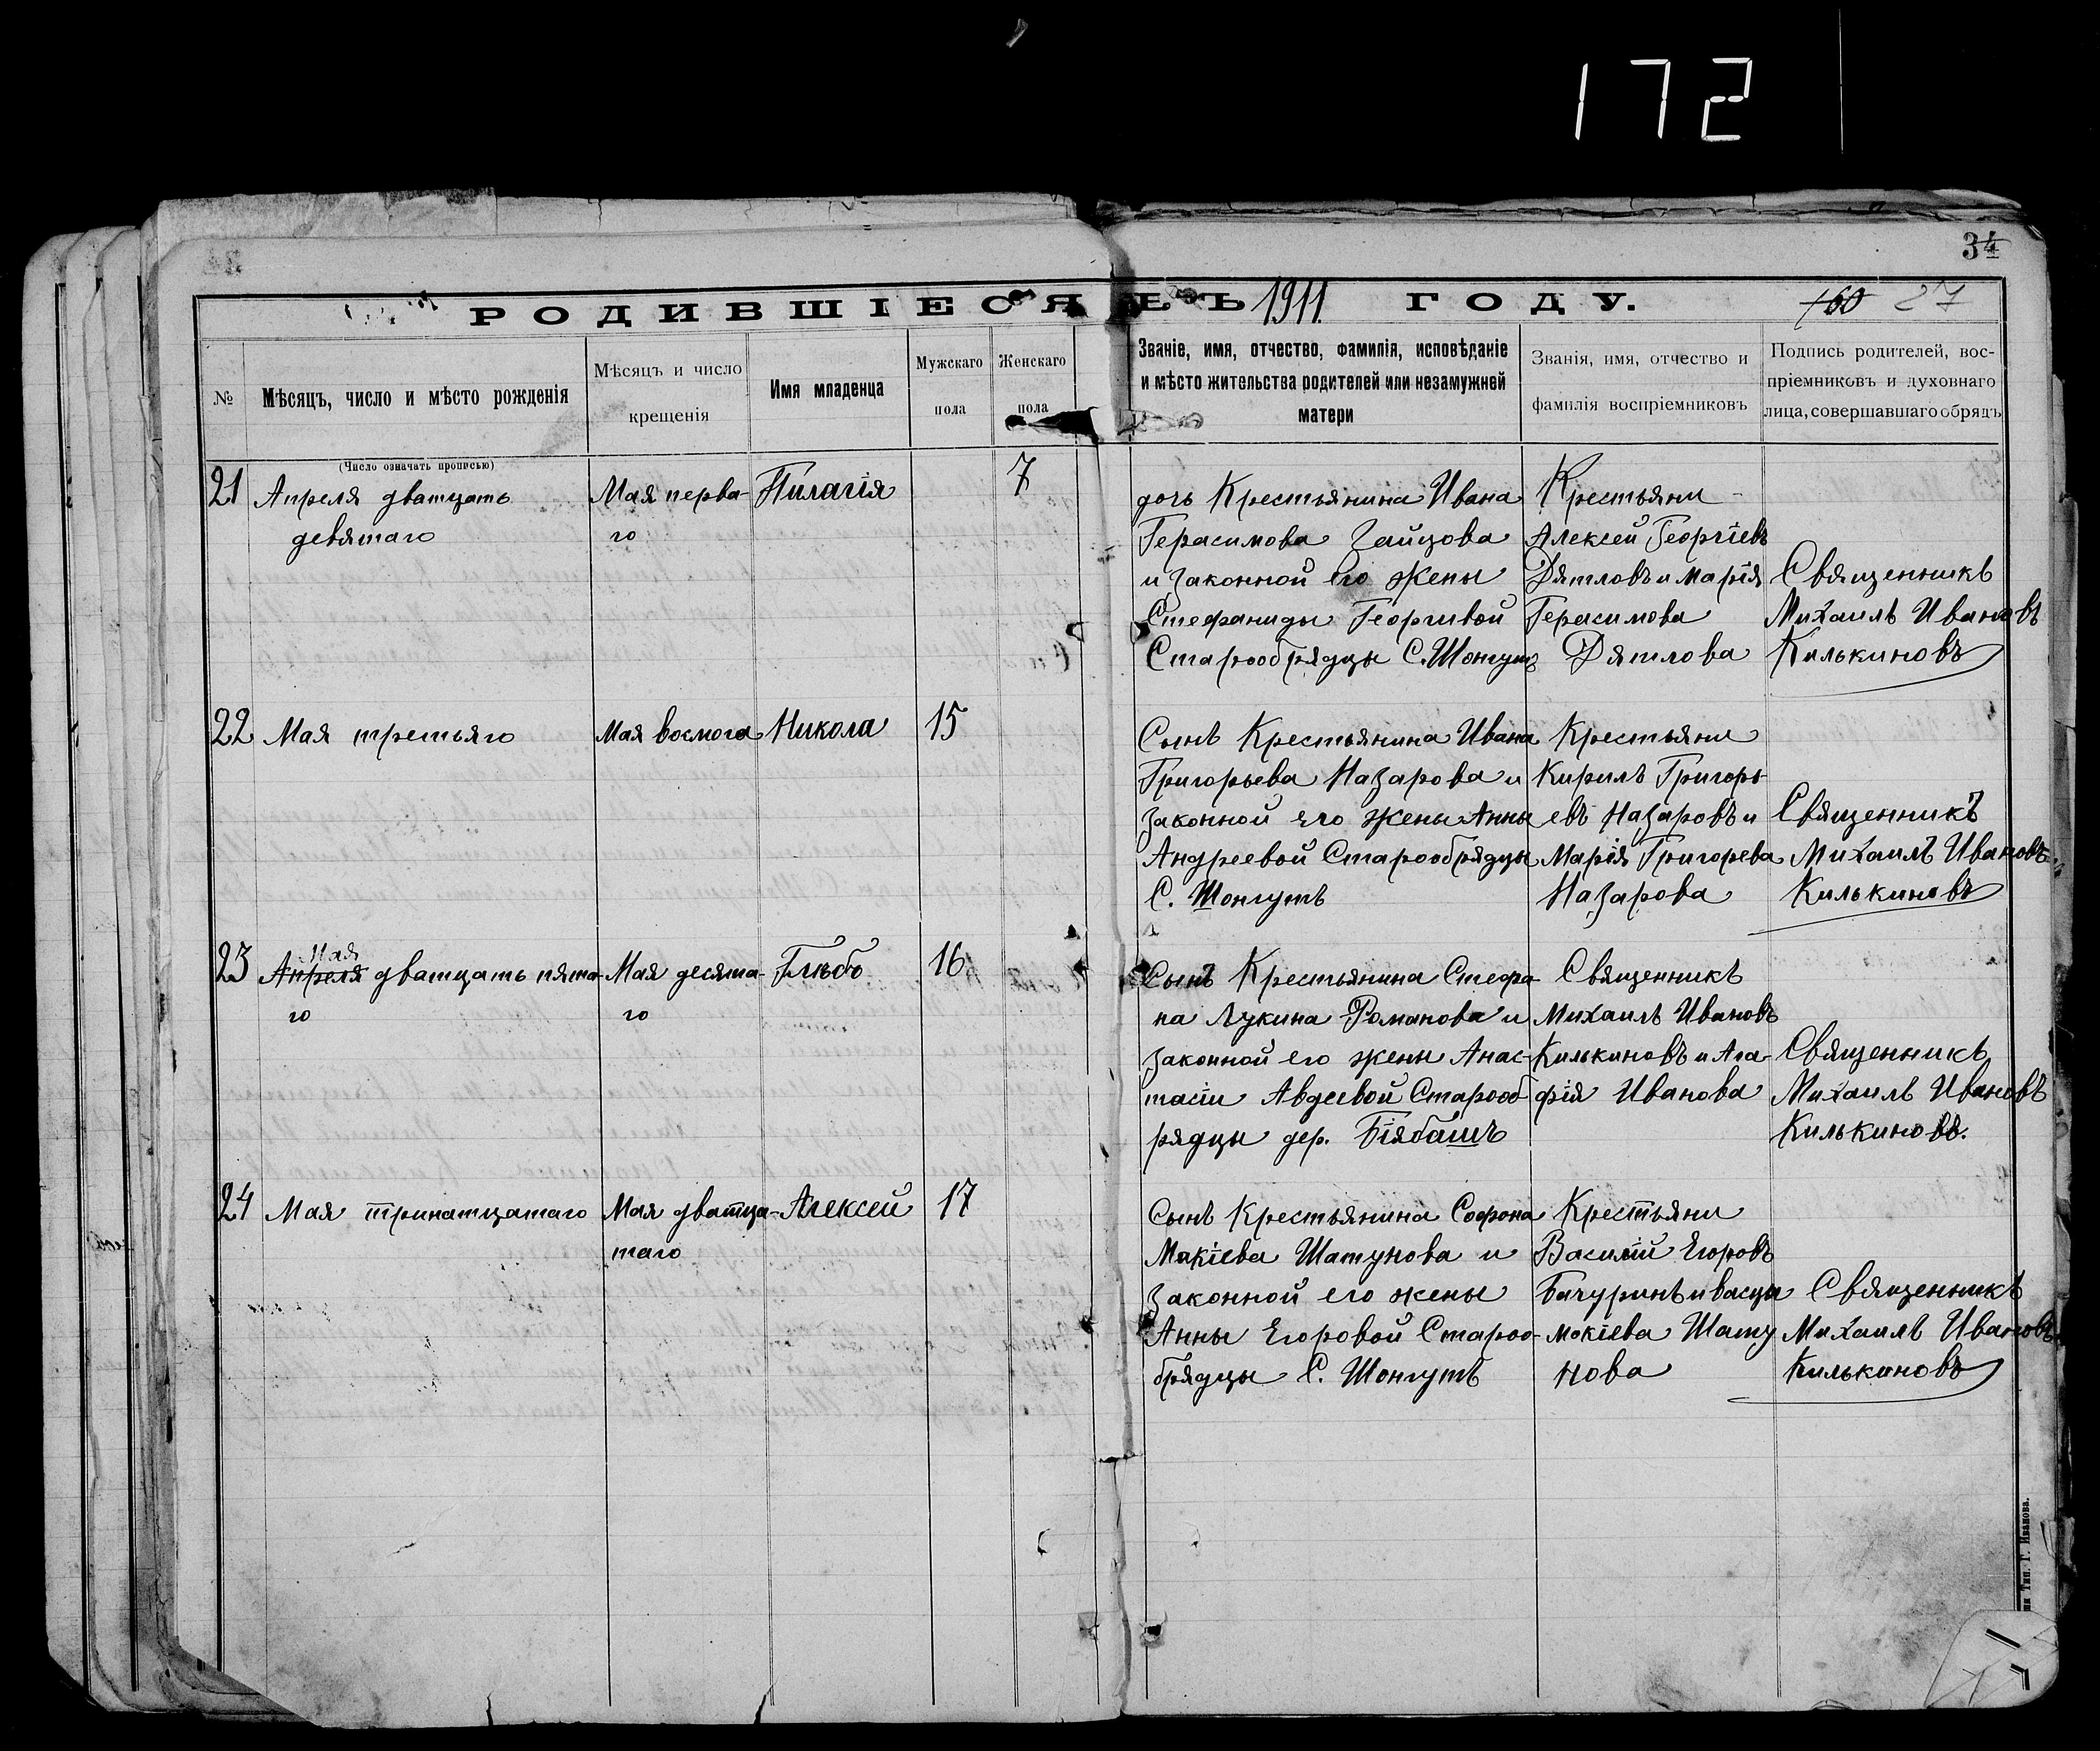 172
34
РОДИВШІЕСЯ ВЪ 1911 ГОДУ.
160 27
№
Мѣсяцъ, число и мѣсто рожденія
Мѣсяцъ и число
крещенія
Имя младенца
Мужскаго
пола
Женскаго
пола
Званіе, имя, отчество, фамилія, исповѣданіе
и мѣсто жительства родителей или незамужней
матери
Званія, имя, отчество и
фамилія воспріемниковъ
Подпись родителей, вос-
пріемниковъ и духовнаго
лица, совершавшаго обрядъ
(Число означать прописью)
21
Апреля дватцать
девятаго
Мая перва-
го
Пилагія
7
дочь Крестьянина Ивана
Герасимова Зайцова
и законной его жены
Стефаниды Георгивой
Старообрядцы С. Шонгутъ
Крестьяни
Алексей Георгіевъ
Дятловъ и Марія
Герасимова
Дятлова
Священникъ
Михаилъ Ивановъ
Килькиновъ
22
Мая третьяго
Мая восмога
Никола
15
Сынъ Крестьянина Ивана
Григорьева Назарова и
законной его жены Анны
Андреевой Старообрядцы
С. Шонгутъ
Крестьяни
Кирилъ Григорь
евъ Назаровъ и
Марія Григорева
Назарова
Священникъ
Михаилъ Ивановъ
Килькиновъ
23
Мая
Апреля дватцать пята-
го
Мая десята-
го
Глѣбъ
16
Сынъ Крестьянина Стефа-
на Лукина Романова и
законной его жены Анас-
тасіи Авдеевой Старооб
рядцы дер. Біябашъ
Священникъ
Михаилъ Ивановъ
Килькиновъ и Ага-
фія Иванова
Священникъ
Михаилъ Ивановъ
Килькиновъ.
24
Мая тринатцатаго
Мая дватца-
таго
Алексей
17
сынъ Крестьянина Софона
Макіева Шатунова и
Законной его жены
Анны Егоровой Староо-
брядцы С. Шонгутъ
Крестьяни
Василій Егоровъ
Бачуринъ и васца
мокіева Шату
нова
Священникъ
Михаилъ Ивановъ
Килькиновъ
Тип. Г. Иванова.